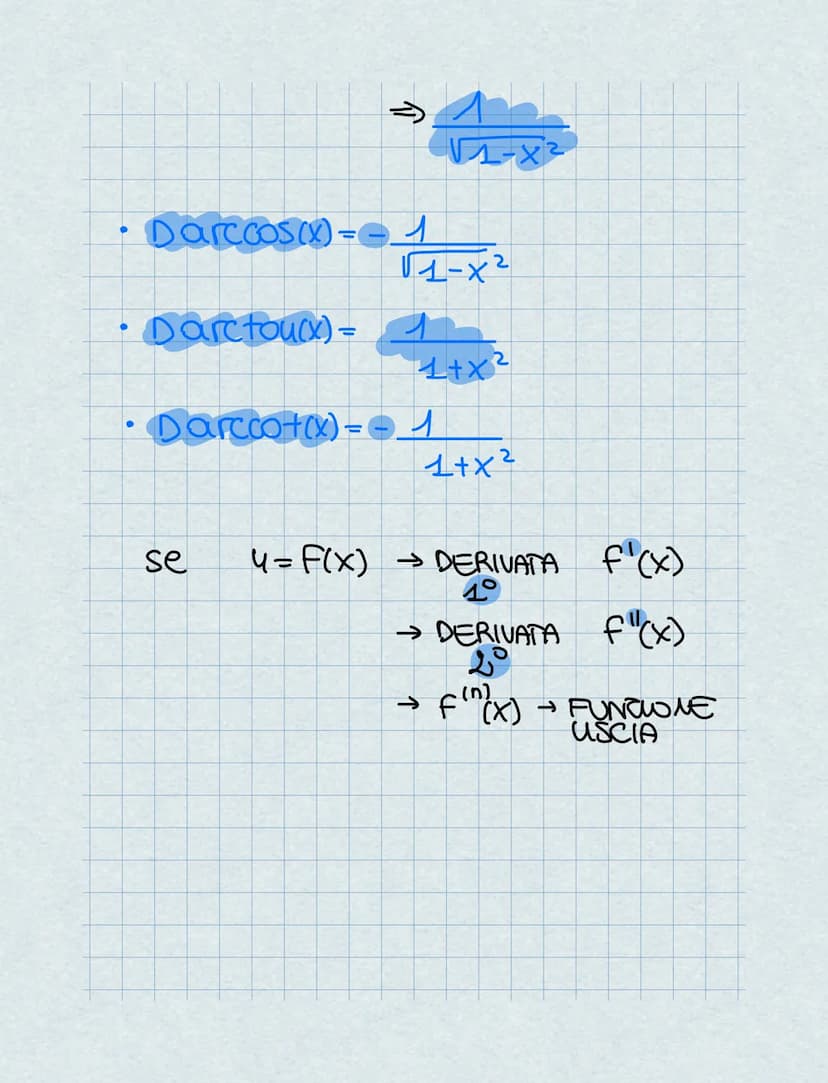 ⇒ 1/√1-x²
• D arccos(x) = - 1/√1-x²
• D arctan(x) = 1/1+x²
• D arccot(x) = - 1/1+x²
se y = F(x) → DERIVATA 1° f'(x)
→ DERIVATA 2° f''(x)
→ f⁽ⁿ⁾(x) → FUNZIONE
LISCIA